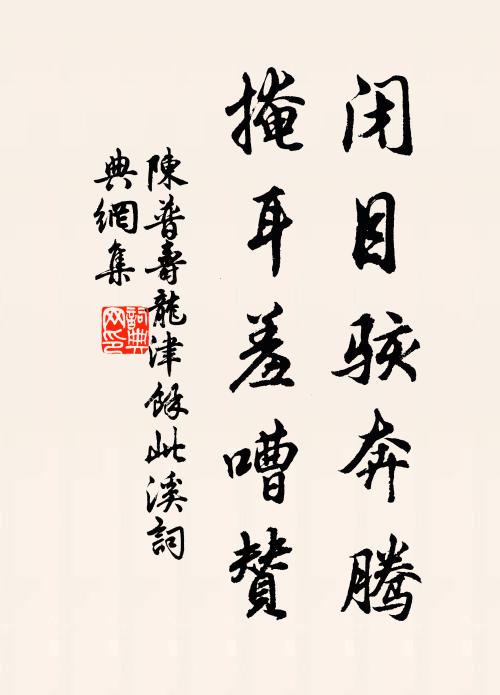 闭目骇奔腾
掩耳羞嘈赞
陳普壽龍津餘此溪詞
典網集
詞典网印